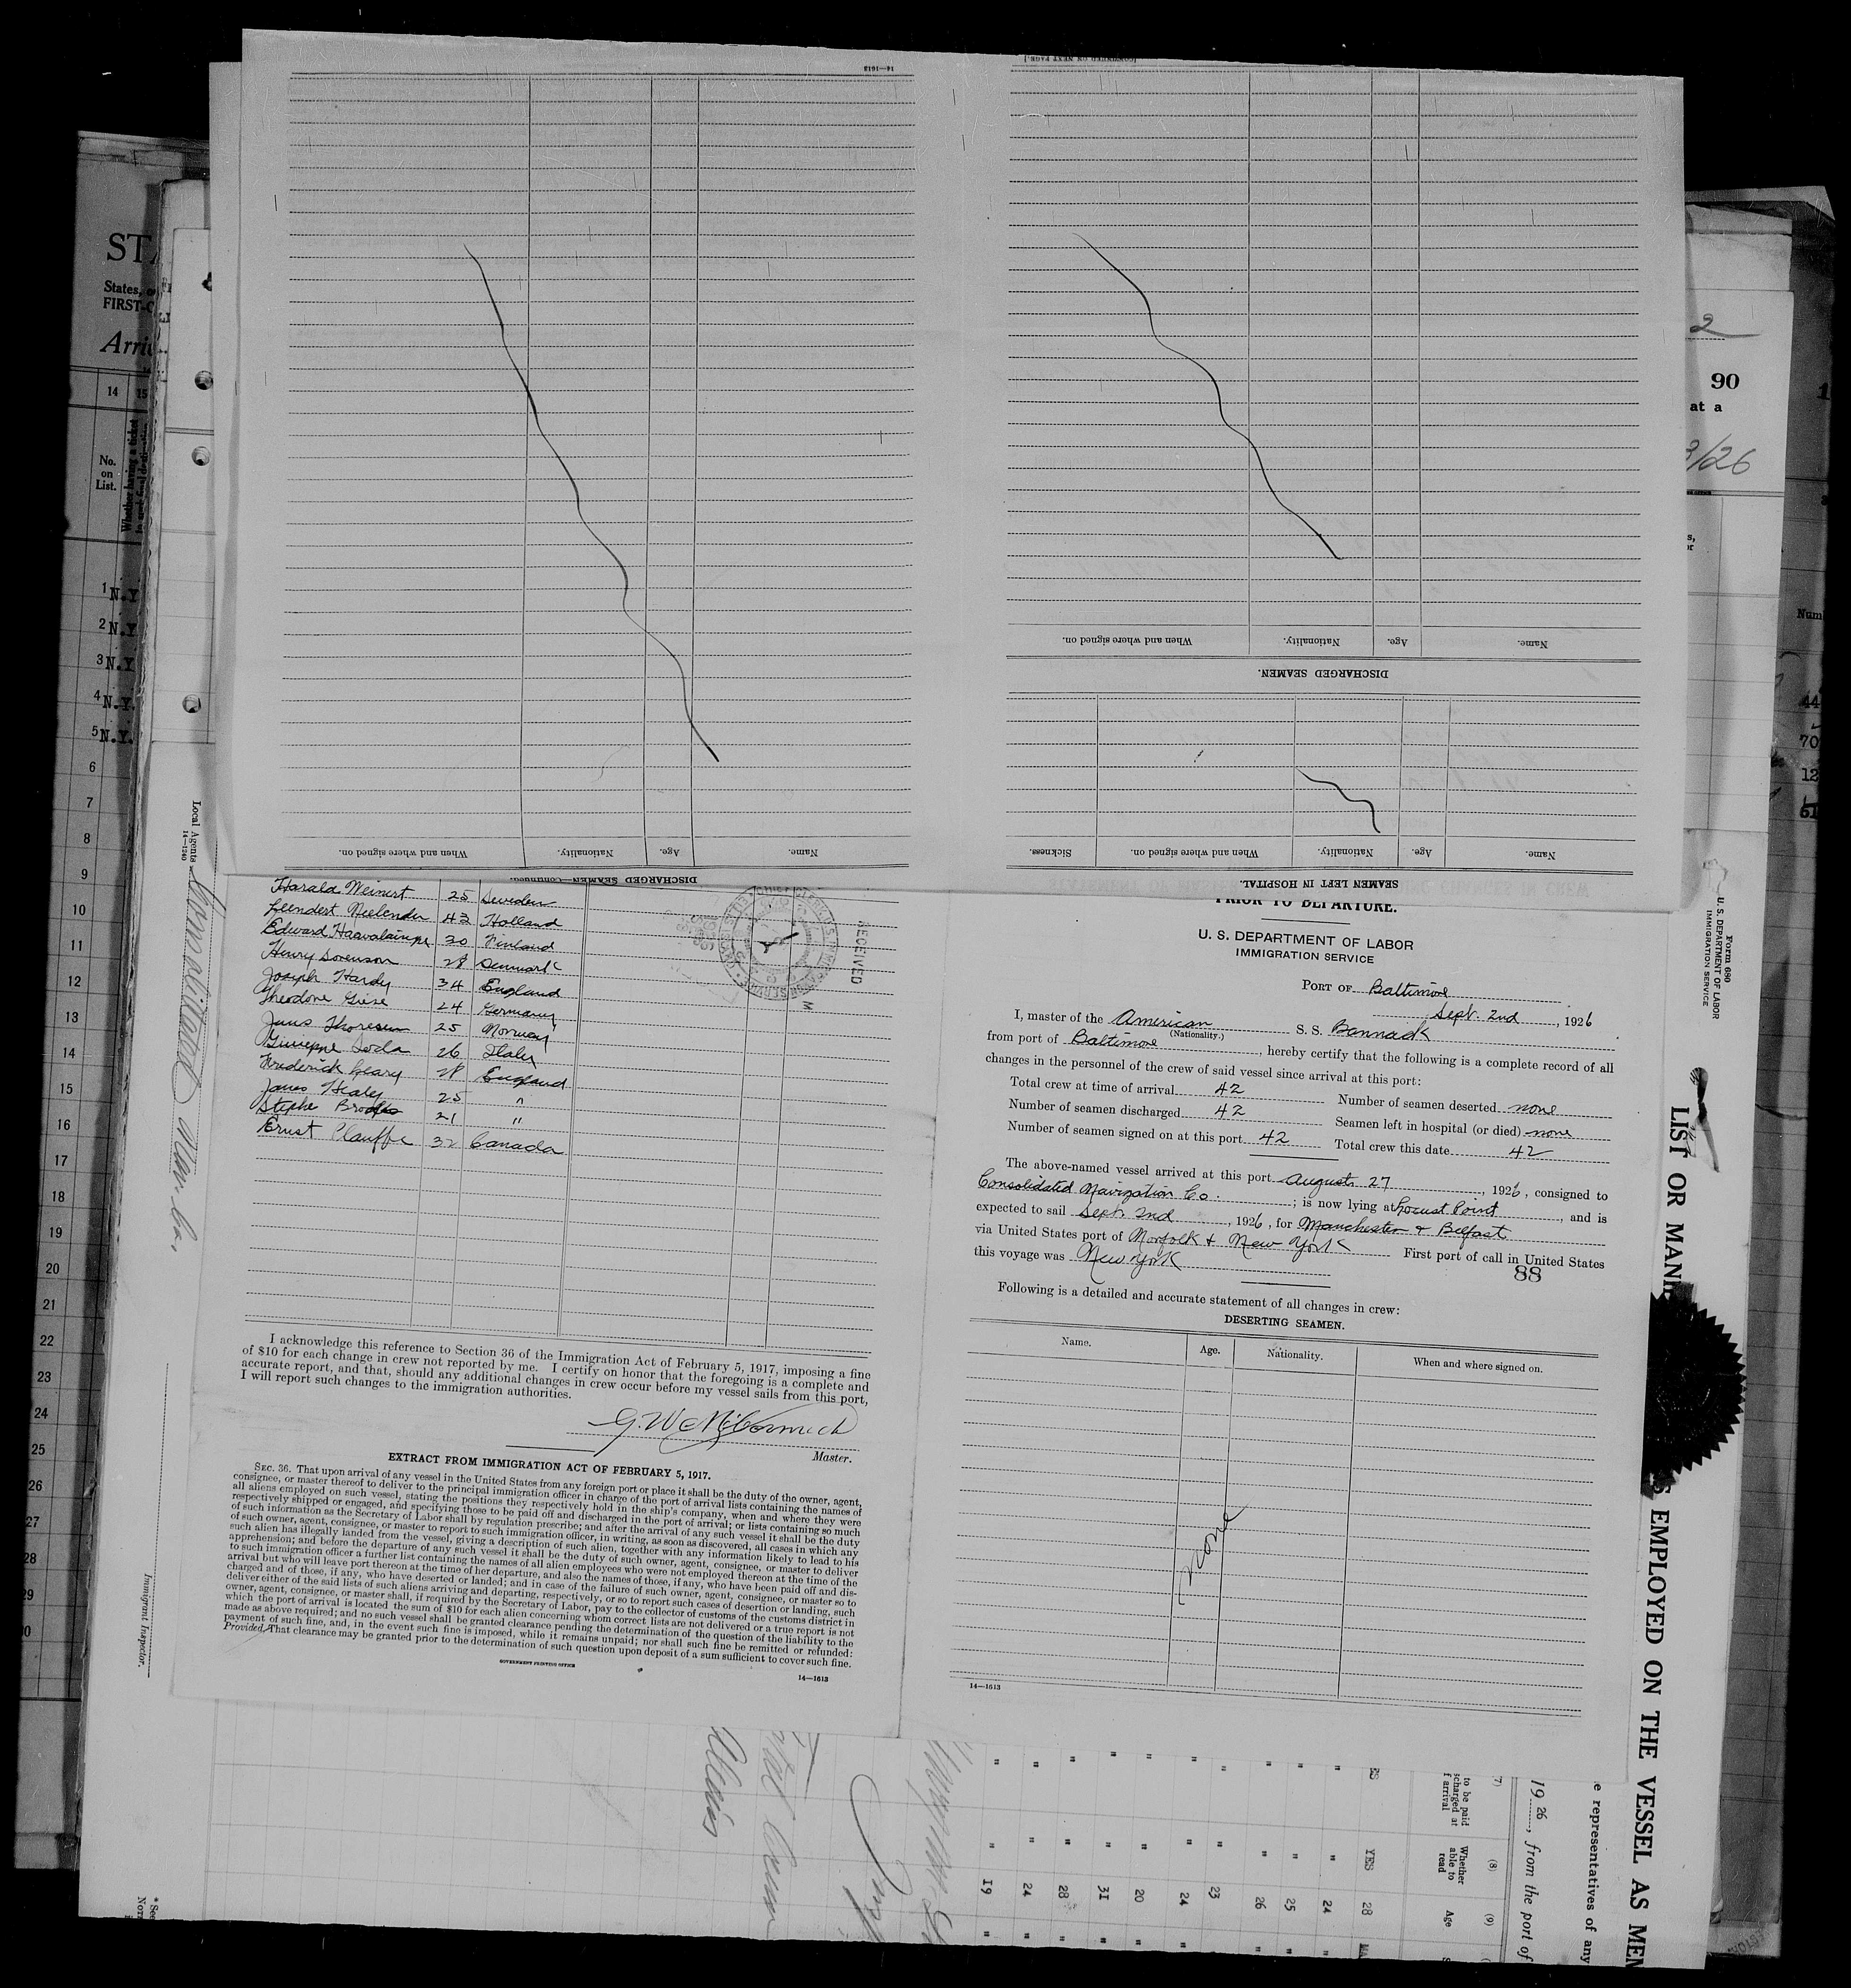 14—1613
[CONTINUED ON NEXT PAGE.]
When and where signed on.
Nationality.
Age.
Name.
DISCHARGED SEAMEN.
Name.
Age.
Nationality.
When and where signed on.
Name.
Age.
Nationality.
When and where signed on.
Sickness.
SEAMEN LEFT IN HOSPITAL.
DISCHARGED SEAMEN—Continued.
Harald Weinert 25 Sweden
Leendest Nielender 43 Holland
Edward 30 Finland
Henry Sorenson 28 Denmark
Joseph Hardy 34 England
Theodore Giese 24 Germany
Jens Thoresen 25 Norway
Giuseppe Soda 26 Italy
Frederick Geary 28 England
James Healy 25 "
Stephe Brooks 21 "
Ernst Plauffe 32 Canada
RECEIVED
I acknowledge this reference to Section 36 of the Immigration Act of February 5, 1917, imposing a fine
of $10 for each change in crew not reported by me. I certify on honor that the foregoing is a complete and
accurate report, and that, should any additional changes in crew occur before my vessel sails from this port,
I will report such changes to the immigration authorities.
G. W. McCormick
Master.
EXTRACT FROM IMMIGRATION ACT OF FEBRUARY 5, 1917.
SEC. 36. That upon arrival of any vessel in the United States from any foreign port or place it shall be the duty of the owner, agent,
consignee, or master thereof to deliver to the principal immigration officer in charge of the port of arrival lists containing the names of
all aliens employed on such vessel, stating the positions they respectively hold in the ship's company, when and where they were
respectively shipped or engaged, and specifying those to be paid off and discharged in the port of arrival; or lists containing so much
of such information as the Secretary of Labor shall by regulation prescribe; and after the arrival of any such vessel it shall be the duty
of such owner, agent, consignee, or master to report to such immigration officer, in writing, as soon as discovered, all cases in which any
such alien has illegally landed from the vessel, giving a description of such alien, together with any information likely to lead to his
apprehension; and before the departure of any such vessel it shall be the duty of such owner, agent, consignee, or master to deliver
to such immigration officer a further list containing the names of all alien employees who were not employed thereon at the time of the
arrival but who will leave port thereon at the time of her departure, and also the names of those, if any, who have been paid off and dis-
charged and of those, if any, who have deserted or landed; and in case of the failure of such owner, agent, consignee, or master so to
deliver either of the said lists of such aliens arriving and departing, respectively, or so to report such cases of desertion or landing, such
owner, agent, consignee, or master shall, if required by the Secretary of Labor, pay to the collector of customs of the customs district in
which the port of arrival is located the sum of $10 for each alien concerning whom correct lists are not delivered or a true report is not
made as above required; and no such vessel shall be granted clearance pending the determination of the question of the liability to the
payment of such fine, and, in the event such fine is imposed, while it remains unpaid; nor shall such fine be remitted or refunded:
Provided, That clearance may be granted prior to the determination of such question upon deposit of a sum sufficient to cover such fine.
GOVERNMENT PRINTING OFFICE
14—1613
PRIOR TO DEPARTURE.
U. S. DEPARTMENT OF LABOR
IMMIGRATION SERVICE
PORT OF Baltimore
Sept. 2nd, 1926
I, master of the American S. S. Bannack
(Nationality.)
from port of Baltimore, hereby certify that the following is a complete record of all
changes in the personnel of the crew of said vessel since arrival at this port:
Total crew at time of arrival 42 Number of seamen deserted none
Number of seamen discharged 42 Seamen left in hospital (or died) none
Number of seamen signed on at this port 42 Total crew this date 42
The above-named vessel arrived at this port August 27, 1926, consigned to
Consolidated Navigation Co.; is now lying at Locust Point, and is
expected to sail Sept. 2nd, 1926, for Manchester & Belfast
via United States port of Norfolk & New York First port of call in United States
this voyage was New York
88
Following is a detailed and accurate statement of all changes in crew:
DESERTING SEAMEN.
Name. Age. Nationality. When and where signed on.
none
14—1613
States, o
FIRST-C
14 15
No.
on
List.
1 N.Y
2 N.Y.
3 N.Y
4 N.Y.
5 N.Y.
6
7
8
9
10
11
12
13
14
15
16
17
18
19
20
21
22
23
24
25
26
27
28
Local Agents
14—1240
Immigrant Inspector.
2
90
at a
3/26
44
70
12
Form 680
U. S. DEPARTMENT OF LABOR
IMMIGRATION SERVICE
LIST OR MANI
EMPLOYED ON THE VESSEL AS MEM
e representatives of any
1926, from the port of
(7) (8) (9)
to be paid
Whether
able to
read
Age
YES 28
24
25
26
23
24
20
31
28
24
19